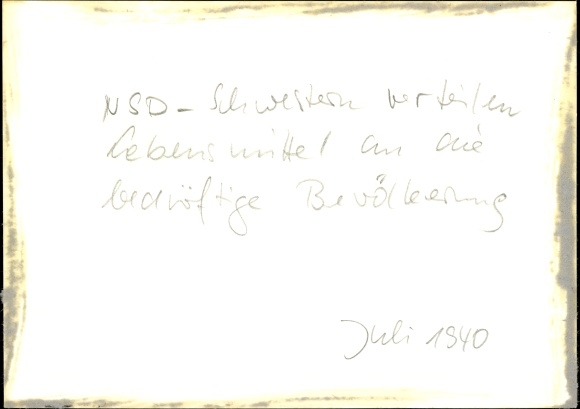 NSD-Schwestern verteilen
Lebensmittel an die
bedürftige Bevölkerung
Juli 1940